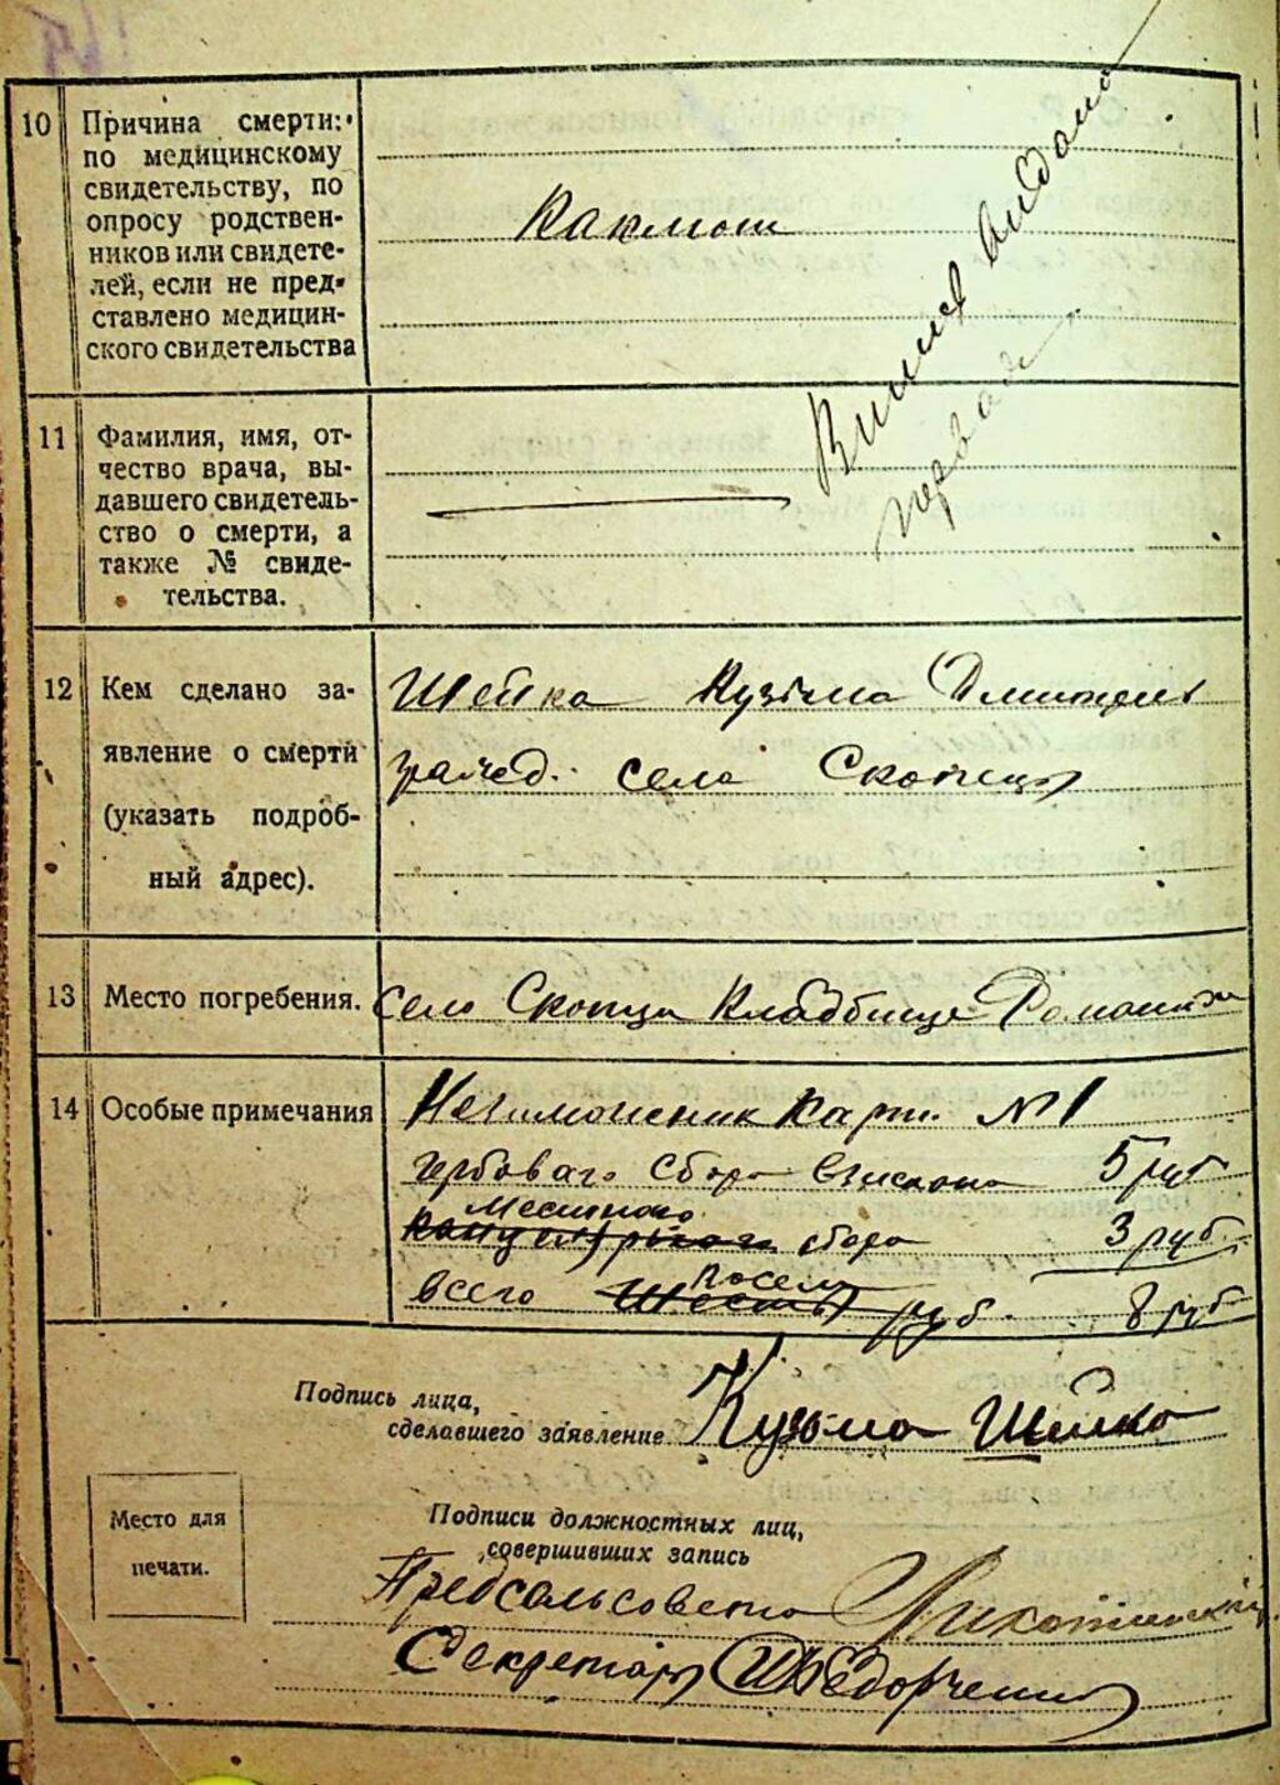 10 Причина смерти:
по медицинскому
свидетельству, по
опросу родствен-
ников или свидете-
лей, если не пред-
ставлено медицин-
ского свидетельства
11 Фамилия, имя, от-
чество врача, вы-
давшего свидетель-
ство о смерти, а
также № свиде-
тельства.
12 Кем сделано за-
явление о смерти
(указать подроб-
ный адрес).
Шейка Кузьма
села Скопцы
13 Место погребения. Село Скопци Кладбище
14 Особые примечания
карт. № 1
гербоваго сбора взыскано 5 руб
Местного
сбора 3 руб.
всего руб. 8 руб
Подпись лица,
сделавшего заявление Кузьма Шейко
Место для
печати.
Подписи должностных лиц,
совершивших запись
Предсельсовета
Секретарь